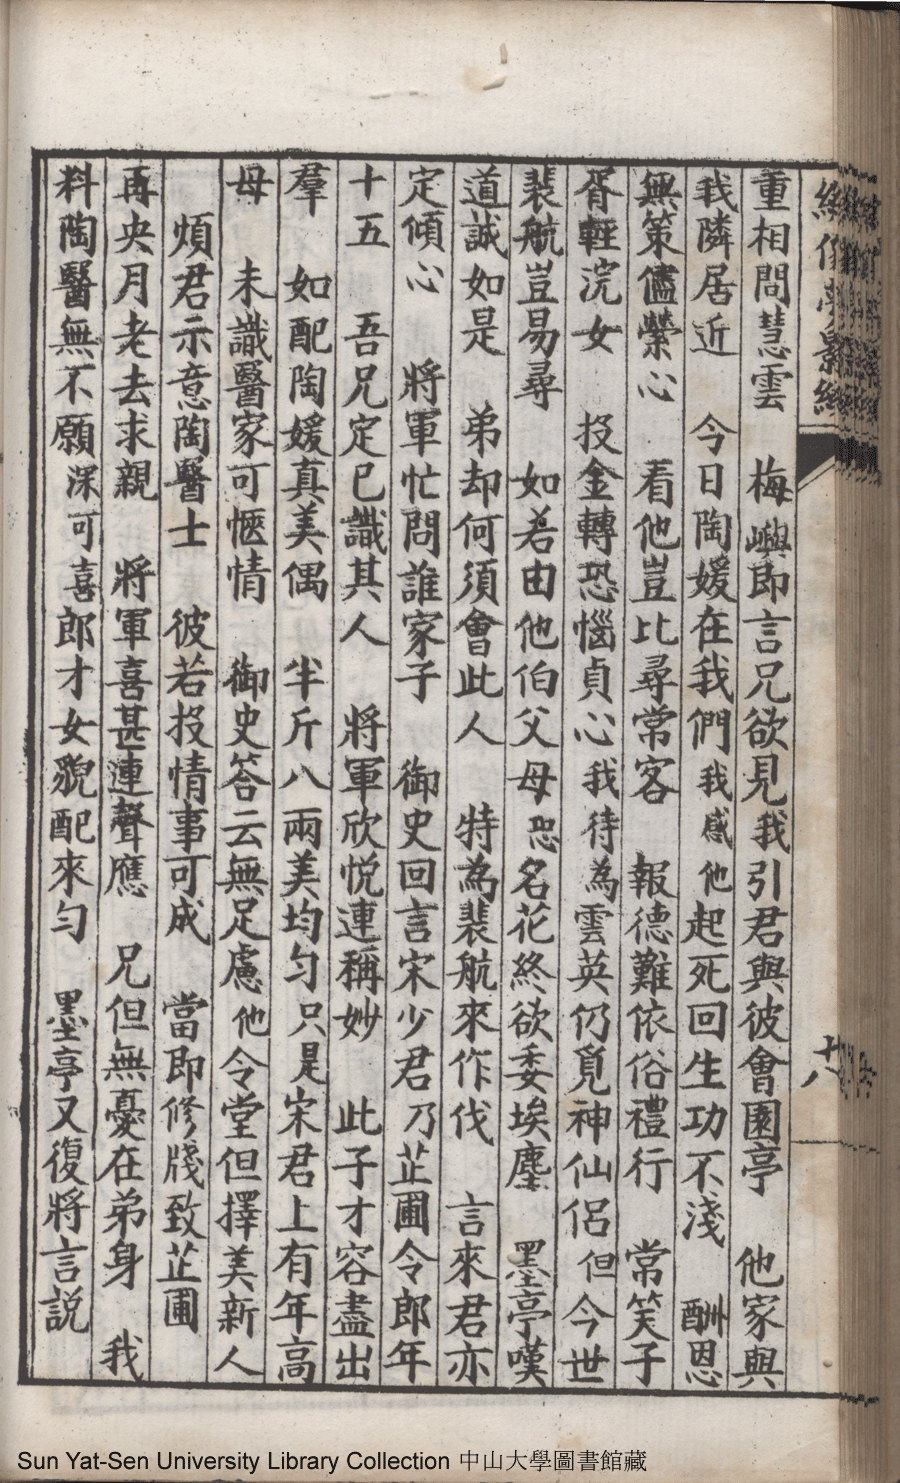 重相問慧雲　梅嶼即言兄欲見我引君與彼會園亭　他家與
我隣居近　今日陶媛在我們我感他起死回生功不淺　酬恩
無策儘縈心　看他豈比尋常客　報德難依俗禮行　常笑子
胥輕浣女　投金轉恐惱貞心我待為雲英仍覓神仙侶但今世
裴航豈易尋　如若由他伯父母恐名花終欲委埃塵　墨亭嘆
道誠如是　弟却何須會此人　特為裴航來作伐　言來君亦
定傾心　將軍忙問誰家子　御史回言宋少君乃芷圃令郎年
十五　吾兄定已識其人　將軍欣悦連稱妙　此子才容盡出
羣　如配陶媛真美偶　半斤八兩美均匀只是宋君上有年高
母　未識醫家可愜情　御史答云無足慮他令堂但擇美新人
煩君示意陶醫士　彼若投情事可成　當即修牋致芷圃
再央月老去求親　將軍喜甚連聲應　兄但無憂在弟身　我
料陶醫無不願深可喜郎才女貌配來匀　墨亭又復將言説
十八
Sun Yat-Sen University Library Collection 中山大學圖書館藏